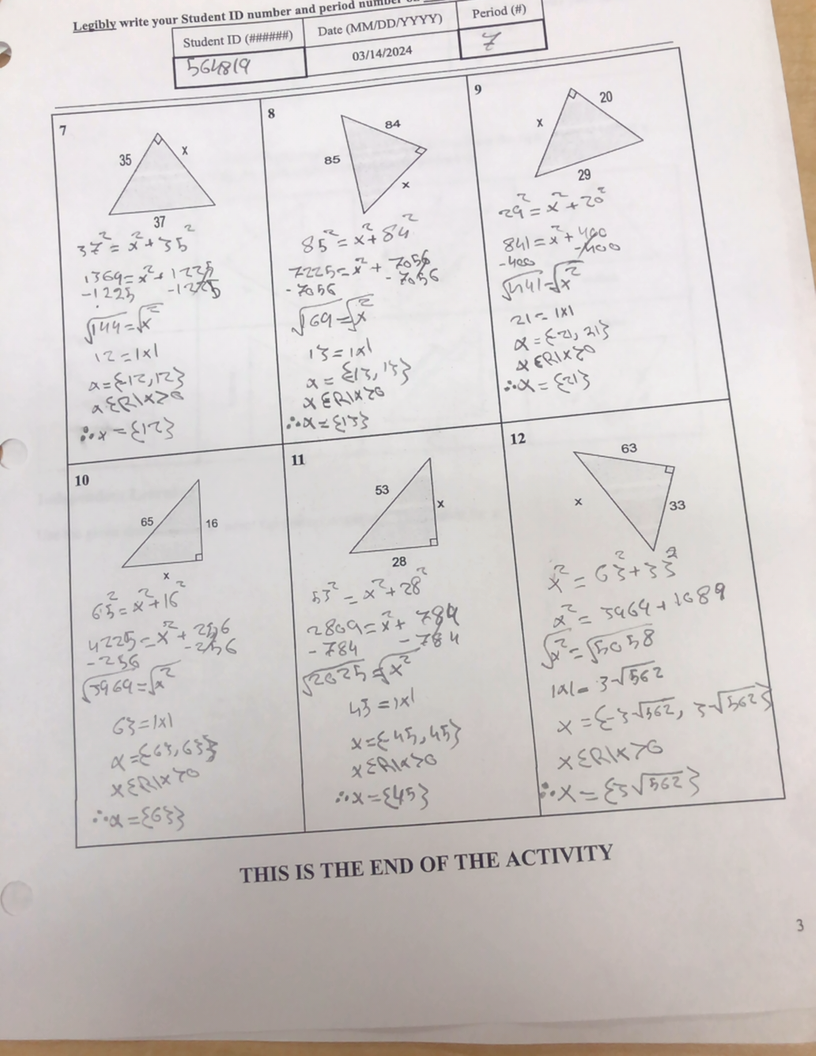 Legibly write your Student ID number and period number
Student ID (######)
Date (MM/DD/YYYY)
Period (#)
564819
03/14/2024
7
7
35
x
37
37² = x² + 35²
1369 = x² + 1225
-1225 -1225
√144 = √x²
12 = |x|
x = {12, 12}
x ∈ ℝ | x > 0
∴ x = {12}
8
84
85
x
85² = x² + 84²
7225 = x² + 7056
-7056 -7056
√169 = √x²
13 = |x|
x = {13, 13}
x ∈ ℝ | x > 0
∴ x = {13}
9
20
x
29
29² = x² + 20²
841 = x² + 400
-400 -400
√441 = √x²
21 = |x|
x = {21, 21}
x ∈ ℝ | x > 0
∴ x = {21}
10
65
16
x
65² = x² + 16²
4225 = x² + 256
-256 -256
√3969 = √x²
63 = |x|
x = {63, 63}
x ∈ ℝ | x > 0
∴ x = {63}
11
53
x
28
53² = x² + 28²
2809 = x² + 784
-784 -784
√2025 = √x²
45 = |x|
x = {45, 45}
x ∈ ℝ | x > 0
∴ x = {45}
12
63
x
33
x² = 63² + 33²
x² = 3969 + 1089
√x² = √5058
|x| = 3√562
x = {-3√562, 3√562}
x ∈ ℝ | x > 0
∴ x = {3√562}
THIS IS THE END OF THE ACTIVITY
3